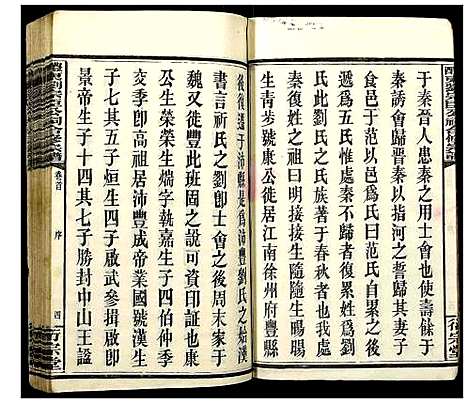 于秦晉人患秦之用士會也使壽餘于
秦誘會歸晉秦以指河之誓歸其妻子
食邑于范以邑爲氏曰范氏自累之後
遞爲五氏惟處秦不歸者復累姓爲氏
是爲劉氏之氏族著于春秋者也
秦復姓之祖曰明明接接生隨隨生暘暘
生青青號康公徙居江南徐州府豐縣
後復遷于沛縣是爲沛豐劉氏之始漢
書言祈氏之劉卽士會之後周末家于
魏又徙豐此班固之說可資印証也康
公生榮榮生煓字執嘉生子四伯仲季
交季卽高祖居沛豐成帝業國號漢生
子七其五子恒生四子啟武參揖啟卽
景帝生子十四其七子勝封中山王謚
卷首
序
四